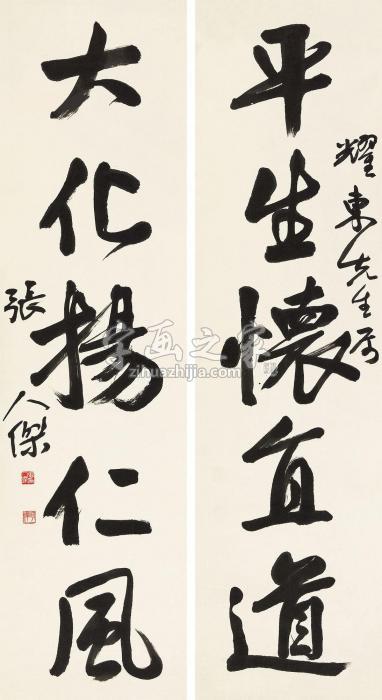 平生懷直道
耀東先生屬
大化揚仁風
張人傑
字画之家
zihuazhijia.com